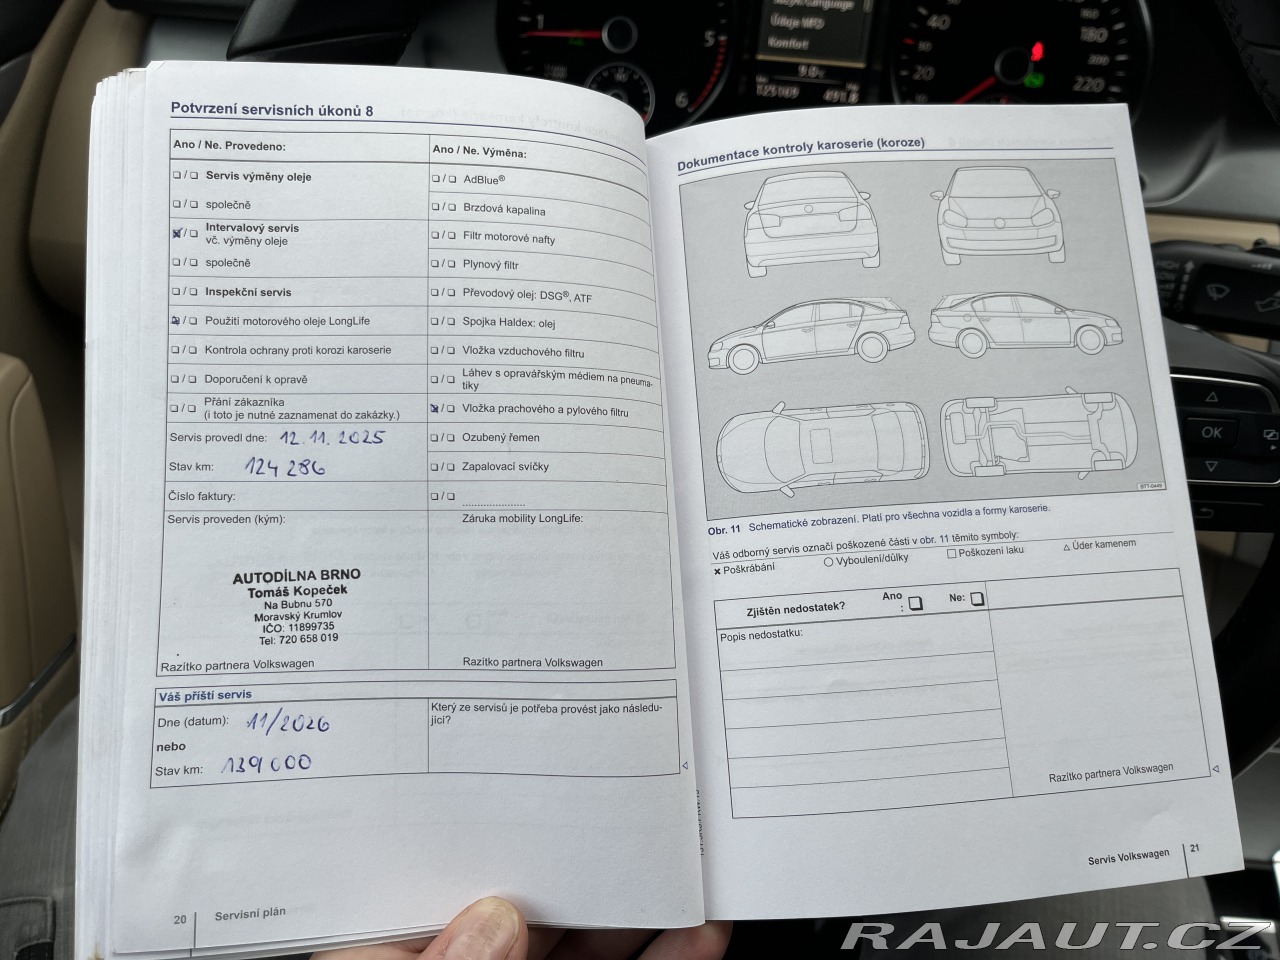 Jazyk/Language
Údaje MFD
Komfort
1
5
6
20
40
180
200
220
Potvrzení servisních úkonů 8
Ano / Ne. Provedeno:
❑ / ❑ Servis výměny oleje
❑ / ❑ společně
❑ / ❑ Intervalový servis
vč. výměny oleje
❑ / ❑ společně
❑ / ❑ Inspekční servis
❑ / ❑ Použiti motorového oleje LongLife
❑ / ❑ Kontrola ochrany proti korozi karoserie
❑ / ❑ Doporučení k opravě
❑ / ❑ Přání zákazníka
(i toto je nutné zaznamenat do zakázky.)
Servis provedl dne: 12. 11. 2025
Stav km: 124 286
Číslo faktury:
Servis proveden (kým):
AUTODÍLNA BRNO
Tomáš Kopeček
Na Bubnu 570
Moravský Krumlov
IČO: 11899735
Tel: 720 658 019
Razítko partnera Volkswagen
Ano / Ne. Výměna:
❑ / ❑ AdBlue®
❑ / ❑ Brzdová kapalina
❑ / ❑ Filtr motorové nafty
❑ / ❑ Plynový filtr
❑ / ❑ Převodový olej: DSG®, ATF
❑ / ❑ Spojka Haldex: olej
❑ / ❑ Vložka vzduchového filtru
❑ / ❑ Láhev s opravářským médiem na pneuma-
tiky
❑ / ❑ Vložka prachového a pylového filtru
❑ / ❑ Ozubený řemen
❑ / ❑ Zapalovací svíčky
❑ / ❑ ......................
Záruka mobility LongLife:
Razítko partnera Volkswagen
Váš příští servis
Dne (datum): 11/2026
nebo
Stav km: 139 000
Který ze servisů je potřeba provést jako následu-
jící?
20 Servisní plán
Dokumentace kontroly karoserie (koroze)
BTT-0449
Obr. 11 Schematické zobrazení. Platí pro všechna vozidla a formy karoserie.
Váš odborný servis označí poškozené části v obr. 11 těmito symboly:
✖ Poškrábání
○ Vyboulení/důlky
□ Poškození laku
△ Úder kamenem
Zjištěn nedostatek?
Ano
: ❑
Ne: ❑
Popis nedostatku:
Razítko partnera Volkswagen
Servis Volkswagen 21
OK
RAJAUT.CZ